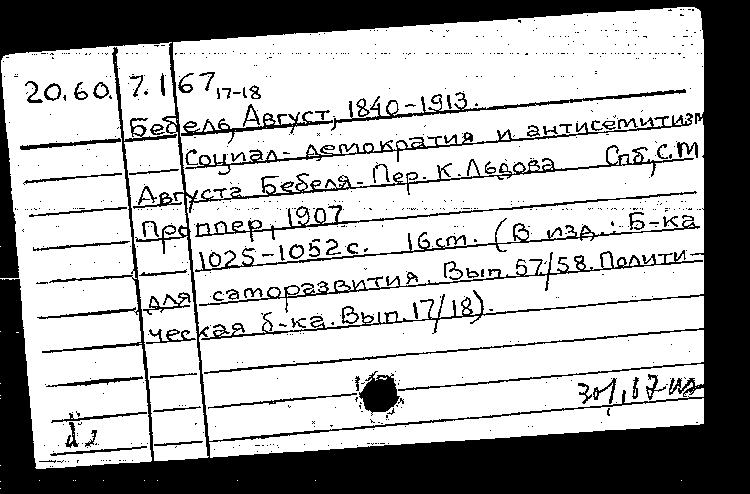 20.60. 7.1 67,17-18
Бебель, Август, 1840-1913.
Социал-демократия и антисемитизм
Августа Бебеля. Пер. К. Льдова Спб, С.М.
Проппер, 1907
1025-1052 с. 16 см. (В изд.: Б-ка
для саморазвития. Вып. 57/58. Полити-
ческая б-ка. Вып. 17/18).